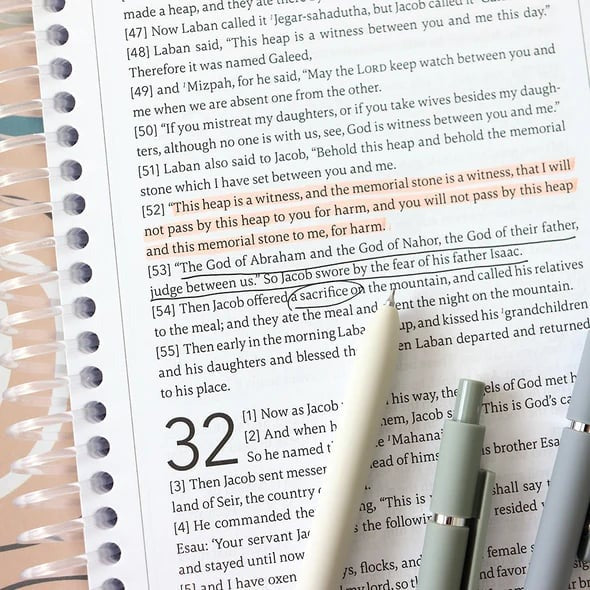 made a heap, and they ate there by
[47] Now Laban called it ¹Jegar-sahadutha, but Jacob called it
[48] Laban said, “This heap is a witness between you and me this day.”
Therefore it was named Galeed,
[49] and ¹Mizpah, for he said, “May the LORD keep watch between you and
me when we are absent one from the other.
[50] “If you mistreat my daughters, or if you take wives besides my daugh-
ters, although no one is with us, see, God is witness between you and me.”
[51] Laban also said to Jacob, “Behold this heap and behold the memorial
stone which I have set between you and me.
[52] “This heap is a witness, and the memorial stone is a witness, that I will
not pass by this heap to you for harm, and you will not pass by this heap
and this memorial stone to me, for harm.
[53] “The God of Abraham and the God of Nahor, the God of their father,
judge between us.” So Jacob swore by the fear of his father Isaac.
[54] Then Jacob offered a sacrifice on the mountain, and called his relatives
to the meal; and they ate the meal and ent the night on the mountain.
[55] Then early in the morning Laba up, and kissed his ¹grandchildren
and his daughters and blessed th en Laban departed and returned
to his place.
32 [1] Now as Jacob his way, the els of God met h
[2] And when h hem, Jacob s “This is God’s ca
So he named t e ¹Mahanai
[3] Then Jacob sent messen ead of hims is brother Esa
land of Seir, the country
[4] He commanded the ng, “This is shall say t
Esau: ‘Your servant Ja s the followin resided
and stayed until now
[5] and I have oxen ys, flocks, and female s
my lord, so th nd favor